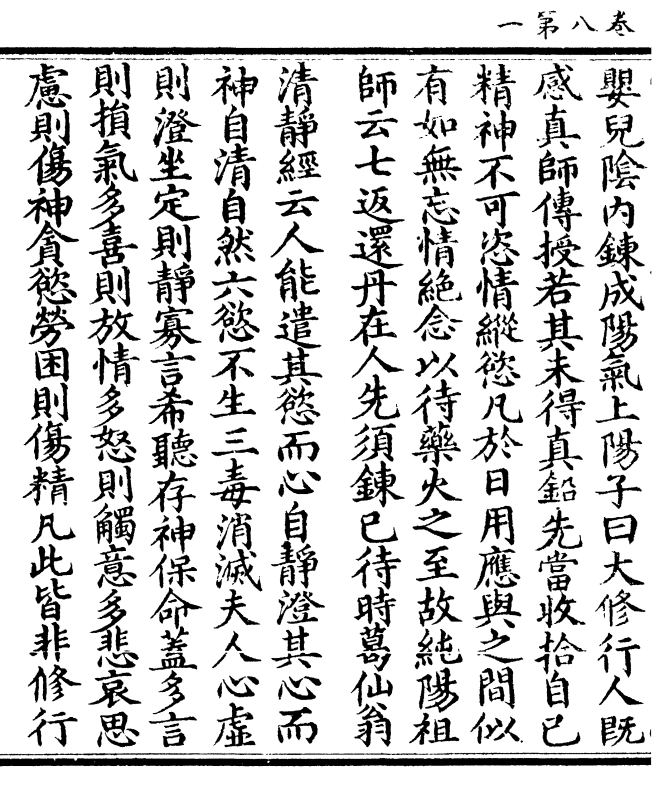 卷八第一
嬰兒陰內鍊成陽氣上陽子曰大修行人既
感真師傳授若其未得真鉛先當收拾自已
精神不可恣情縱慾凡於日用應與之間似
有如無忘情絕念以待藥火之至故純陽祖
師云七返還丹在人先須鍊已待時葛仙翁
清靜經云人能遣其慾而心自靜澄其心而
神自清自然六慾不生三毒消滅夫人心虛
則澄坐定則靜寡言希聽存神保命蓋多言
則損氣多喜則放情多怒則觸意多悲哀思
慮則傷神貪慾勞困則傷精凡此皆非修行